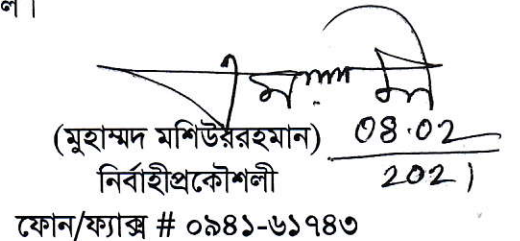 (মুহাম্মদ মশিউররহমান) 08.02
নির্বাহীপ্রকৌশলী 2021
ফোন/ফ্যাক্স # ০৯৪১-৬১৭৪৩